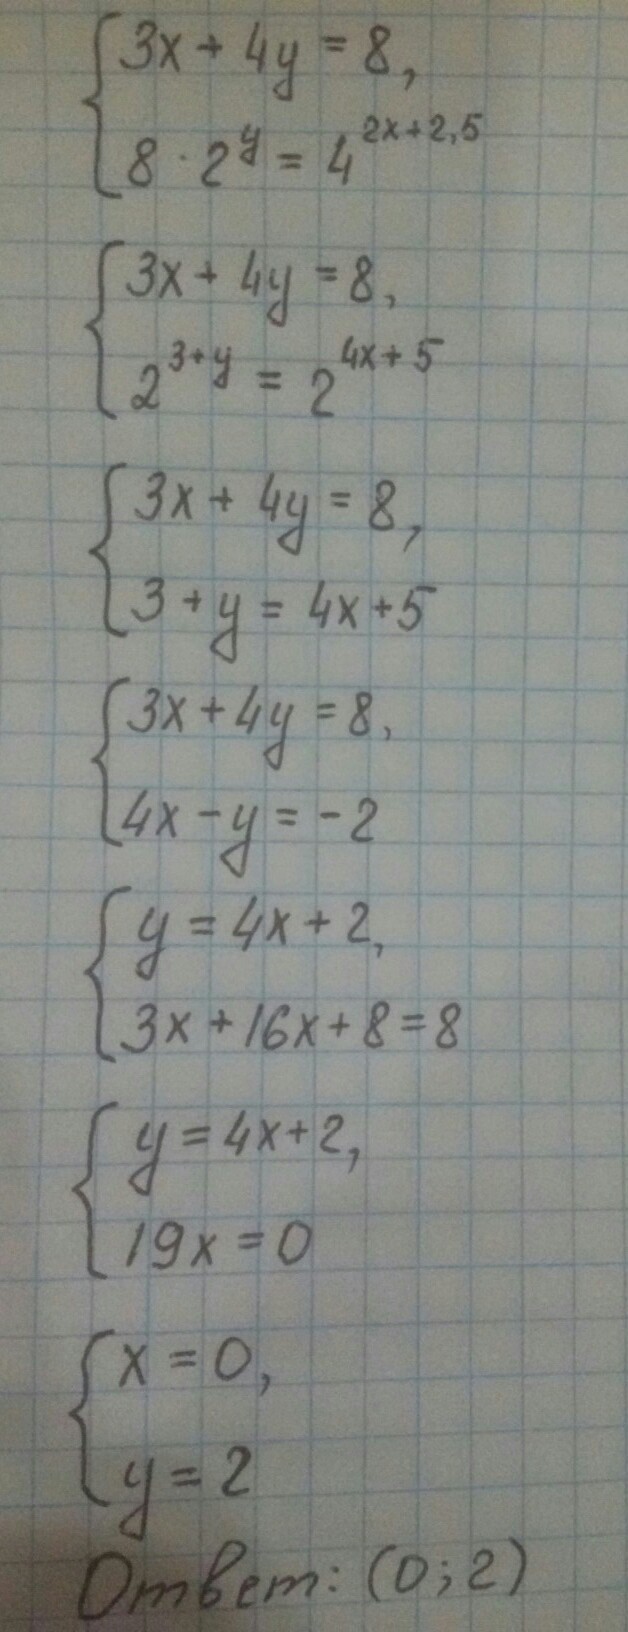 3x + 4y = 8,
8 · 2^y = 4^{2x+2,5}
3x + 4y = 8,
2^{3+y} = 2^{4x+5}
3x + 4y = 8,
3 + y = 4x + 5
3x + 4y = 8,
4x - y = -2
y = 4x + 2,
3x + 16x + 8 = 8
y = 4x + 2,
19x = 0
x = 0,
y = 2
Ответ: (0; 2)